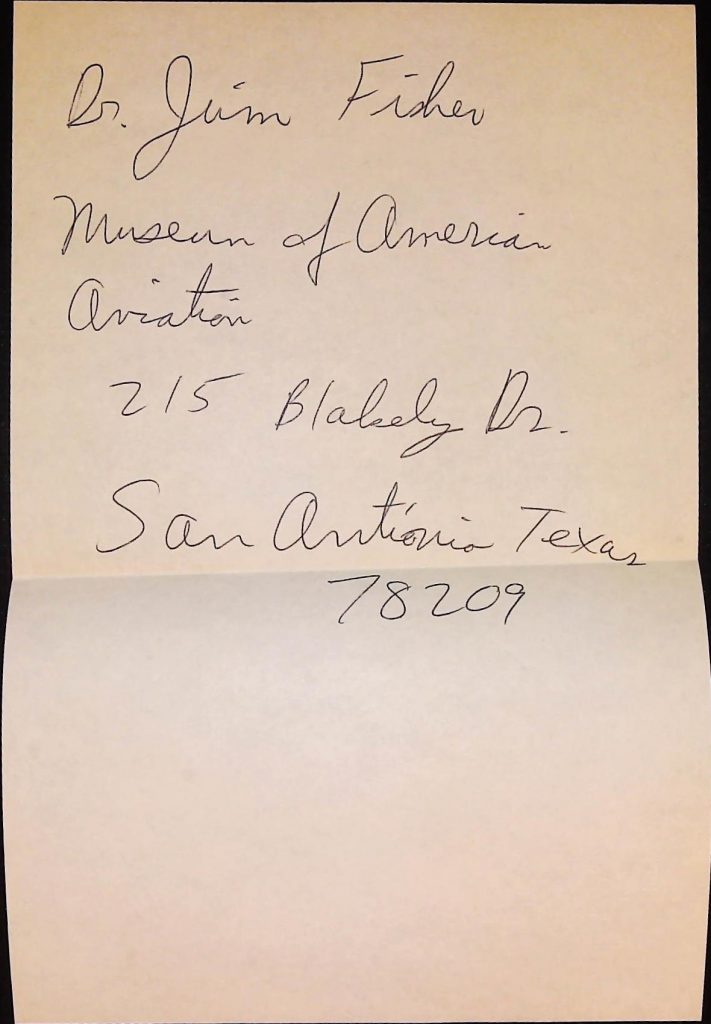 Dr. Jim Fisher
Museum of American
Aviation
215 Blakely Dr.
San Antonio Texas
78209